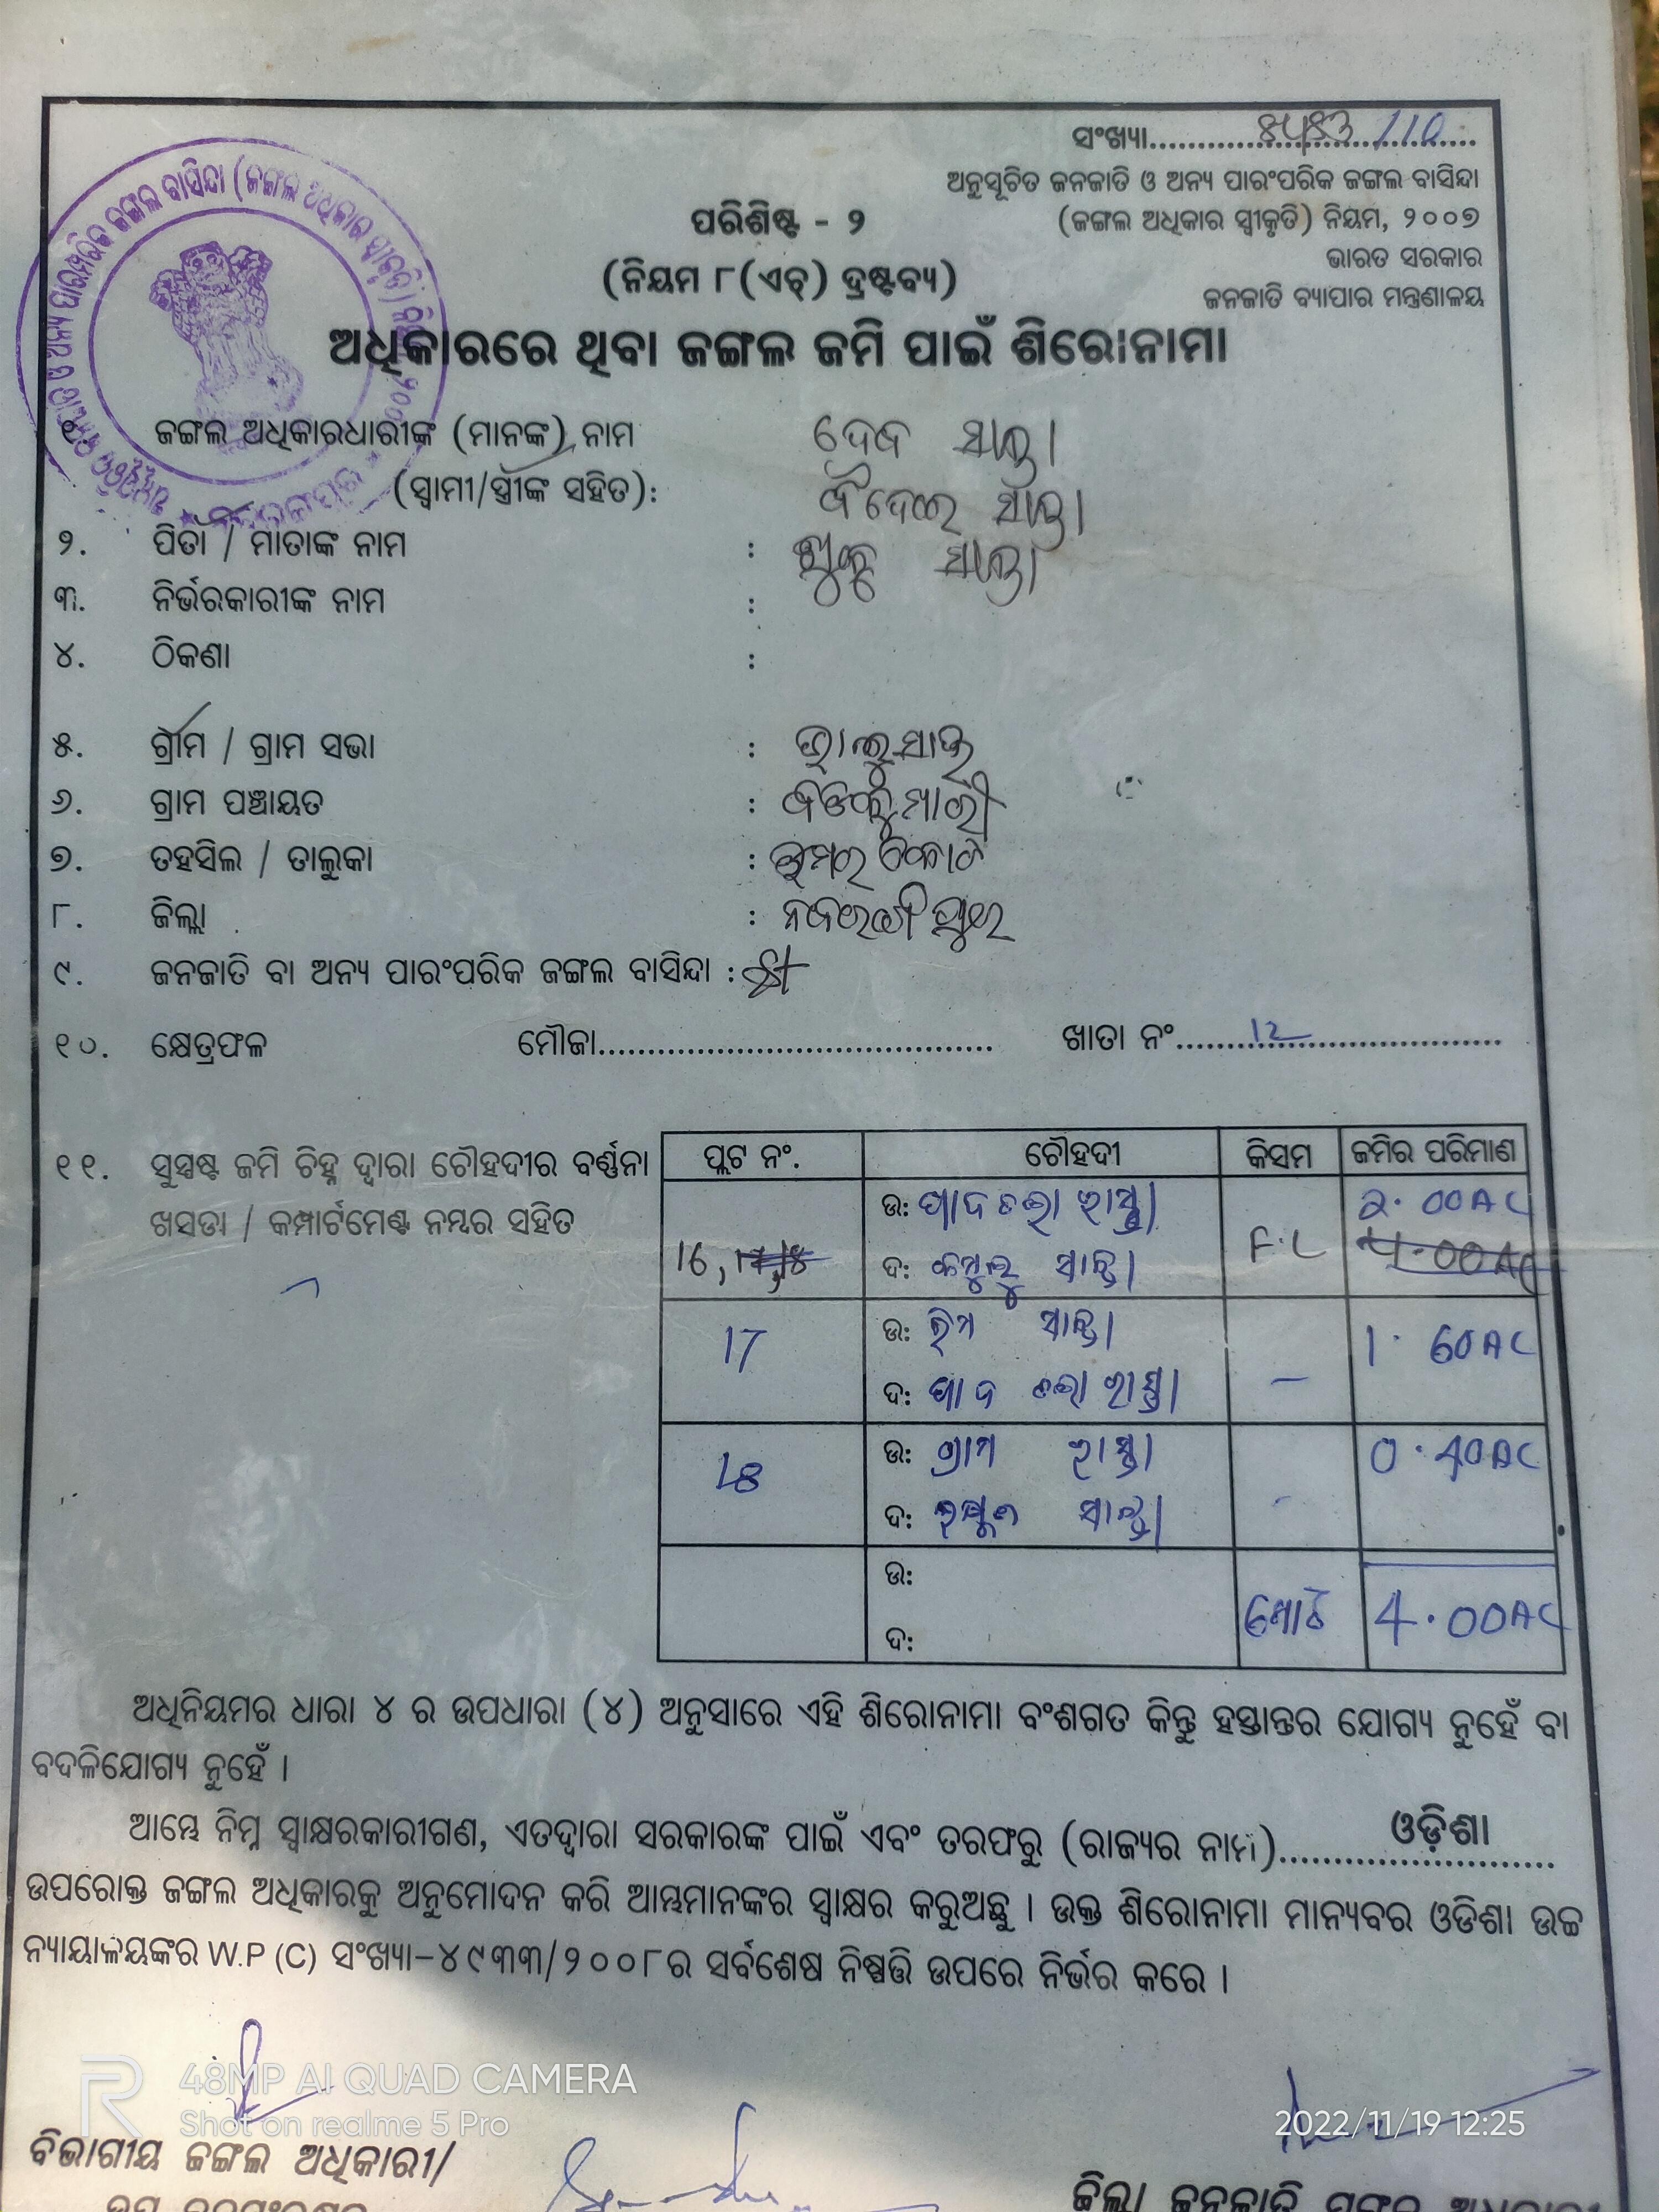 ସଂଖ୍ୟା
ଅନୁସୂଚିତ ଜନଜାତି ଓ ଅନ୍ୟ ପାରଂପରିକ ଜଙ୍ଗଲ ବାସିନ୍ଦା
ପରିଶିଷ୍ଟ - ୨
(ଜଙ୍ଗଲ ଅଧିକାର ସ୍ୱୀକୃତି) ନିୟମ, ୨୦୦୭
ଭାରତ ସରକାର
(ନିୟମ ୮(ଏଚ୍) ଦ୍ରଷ୍ଟବ୍ୟ)
ଜନଜାତି ବ୍ୟାପାର ମନ୍ତ୍ରଣାଳୟ
ଅଧିକାରରେ ଥିବା ଜଙ୍ଗଲ ଜମି ପାଇଁ ଶିରୋନାମା
୧. ଜଙ୍ଗଲ ଅଧିକାରଧାରୀଙ୍କ (ମାନଙ୍କ) ନାମ
(ସ୍ୱାମୀ/ସ୍ତ୍ରୀଙ୍କ ସହିତ):
୨. ପିତା / ମାତାଙ୍କ ନାମ :
୩. ନିର୍ଭରକାରୀଙ୍କ ନାମ :
୪. ଠିକଣା :
୫. ଗ୍ରାମ / ଗ୍ରାମ ସଭା :
୬. ଗ୍ରାମ ପଞ୍ଚାୟତ :
୭. ତହସିଲ / ତାଲୁକା :
୮. ଜିଲ୍ଲା : ନବରଙ୍ଗପୁର
୯. ଜନଜାତି ବା ଅନ୍ୟ ପାରଂପରିକ ଜଙ୍ଗଲ ବାସିନ୍ଦା :
୧୦. କ୍ଷେତ୍ରଫଳ ମୌଜା........................................ ଖାତା ନଂ........12........................
୧୧. ସୁସ୍ପଷ୍ଟ ଜମି ଚିହ୍ନ ଦ୍ୱାରା ଚୌହଦୀର ବର୍ଣ୍ଣନା
ଖସଡା / କମ୍ପାର୍ଟମେଣ୍ଟ ନମ୍ବର ସହିତ
ପ୍ଲଟ ନଂ. ଚୌହଦୀ କିସମ ଜମିର ପରିମାଣ
ଉ: ପାଦ ଚଲା ରାସ୍ତା 2.00AC
16, ଦ: F.L 4.00AC
17 ଉ: 1.60AC
ଦ: ପାଦ ଚଲା ରାସ୍ତା –
18 ଉ: ଗ୍ରାମ ରାସ୍ତା 0.40AC
ଦ: -
ଉ:
ଦ: ମୋଟ 4.00AC
ଅଧିନିୟମର ଧାରା ୪ ର ଉପଧାରା (୪) ଅନୁସାରେ ଏହି ଶିରୋନାମା ବଂଶଗତ କିନ୍ତୁ ହସ୍ତାନ୍ତର ଯୋଗ୍ୟ ନୁହେଁ ବା
ବଦଳିଯୋଗ୍ୟ ନୁହେଁ ।
ଆମ୍ଭେ ନିମ୍ନ ସ୍ୱାକ୍ଷରକାରୀଗଣ, ଏତଦ୍ୱାରା ସରକାରଙ୍କ ପାଇଁ ଏବଂ ତରଫରୁ (ରାଜ୍ୟର ନାମ)........ଓଡ଼ିଶା........
ଉପରୋକ୍ତ ଜଙ୍ଗଲ ଅଧିକାରକୁ ଅନୁମୋଦନ କରି ଆମ୍ଭମାନଙ୍କର ସ୍ୱାକ୍ଷର କରୁଅଛୁ । ଉକ୍ତ ଶିରୋନାମା ମାନ୍ୟବର ଓଡିଶା ଉଚ୍ଚ
ନ୍ୟାୟାଳୟଙ୍କର W.P (C) ସଂଖ୍ୟା-୪୯୩୩/୨୦୦୮ର ସର୍ବଶେଷ ନିଷ୍ପତ୍ତି ଉପରେ ନିର୍ଭର କରେ ।
48MP AI QUAD CAMERA
Shot on realme 5 Pro
2022/11/19 12:25
ବିଭାଗୀୟ ଜଙ୍ଗଲ ଅଧିକାରୀ/
ଜିଲ୍ଲା ଜନଜାତି ମଙ୍ଗଳ ଅଧିକାରୀ